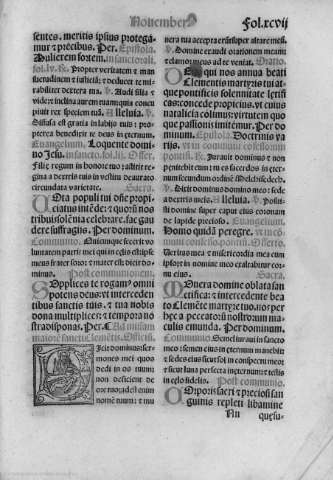 November
Fol.xcvij
sentes, meritis ipsius protega
mur & precibus. Per Epistola.
Mulierem fortem.
Propter veritatem & man
suetudinem & iusticiã; & deducet te mi
rabiliter dextera tua. ℣. Audi filia &
vide: & inclina aurem tuam: quia concu
piuit rex speciem tuã. Alleluia. ℣.
Diffusa est gratia in labijs tuis: pro
pterea benedixit te deus in eternum.
Euangelium. Loquente domi
no Jesu.
Filię regum in honore tuo: astitit re
gina a dextris tuis in vestitu deaurato
circundata varietate. Sacra.
Vota populi tui
ciatus intẽde: & quorũ nos
tribuis solẽnia celebrare, fac gau
dere suffragijs. Per dominum.
Communio. Quicunque fecerit vo
luntatem patris mei qui in celis est: ipse
meus frater soror & mater est: dicit do
minus. Post communionem.
Supplices te rogam⁹ omni
potens deus: vt interceden
tibus sanctis tuis, & tua nobis
dona multiplices: & tempora no
stra disponas. Per.
Officiũ.
Dicit dominus: ser
mones mei quos
dedi in os tuum:
non deficient de
ore tuo; adest enim
nomen tuum: & mu
nera tua accepta erũt super altare meũ.
℣. Domine exaudi orationem meam:
& clamor meus ad te veniat. Oratio.
Deus qui nos annua beati
Clementis martyris tui at
que pontificis solennitate lętifi
cas: concede propicius, vt cuius
natalicia colimus: virtutem quo
que passionis imitemur. Per do
minum. Epistola. Doctrinis va
rijs.
Jurauit dominus & non
penitebit eum: tu es sacerdos in eter
num secundum ordinẽ Melchisedech.
℣. Dixit dominus domino meo: sede
a dextris meis. Alleluia. ℣. Posui
sti domine super caput eius coronam
de lapide precioso. Euangelium.
Homo quidã peregre.
Veritas mea & misericordia mea cum
ipso: & in nomine meo exaltabitur cor
nu eius. Sacra.
Munera domine oblata san
ctifica: & intercedente bea
to Clemẽte martyre tuo, nos per
hęc a peccatorũ nostrorum ma
culis emunda. Per dominum.
Communio. Semel iuraui in sancto
meo: semen eius in eternum manebit
& sedes eius sicut sol in conspectu meo:
& sicut luna perfecta in eternum: & testis
in celo fidelis. Post communio.
Corporis sacri & preciosi san
guinis repleti libamine
Nn quęsu-